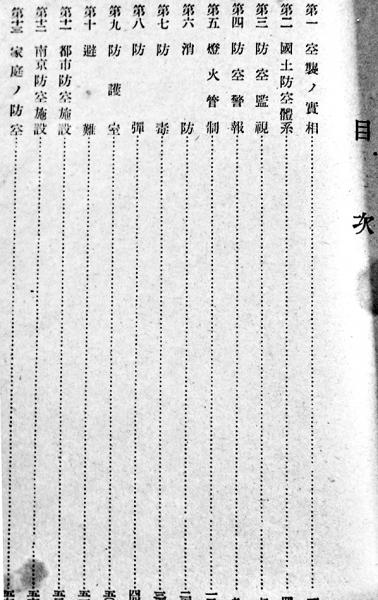 目次
第一 空襲ノ實相
第二 國土防空體系
第三 防空監視
第四 防空警報
第五 燈火管制
第六 消防
第七 防毒
第八 防彈
第九 防護室
第十 避難
第十一 都市防空施設
第十二 南京防空施設
第十三 家庭ノ防空